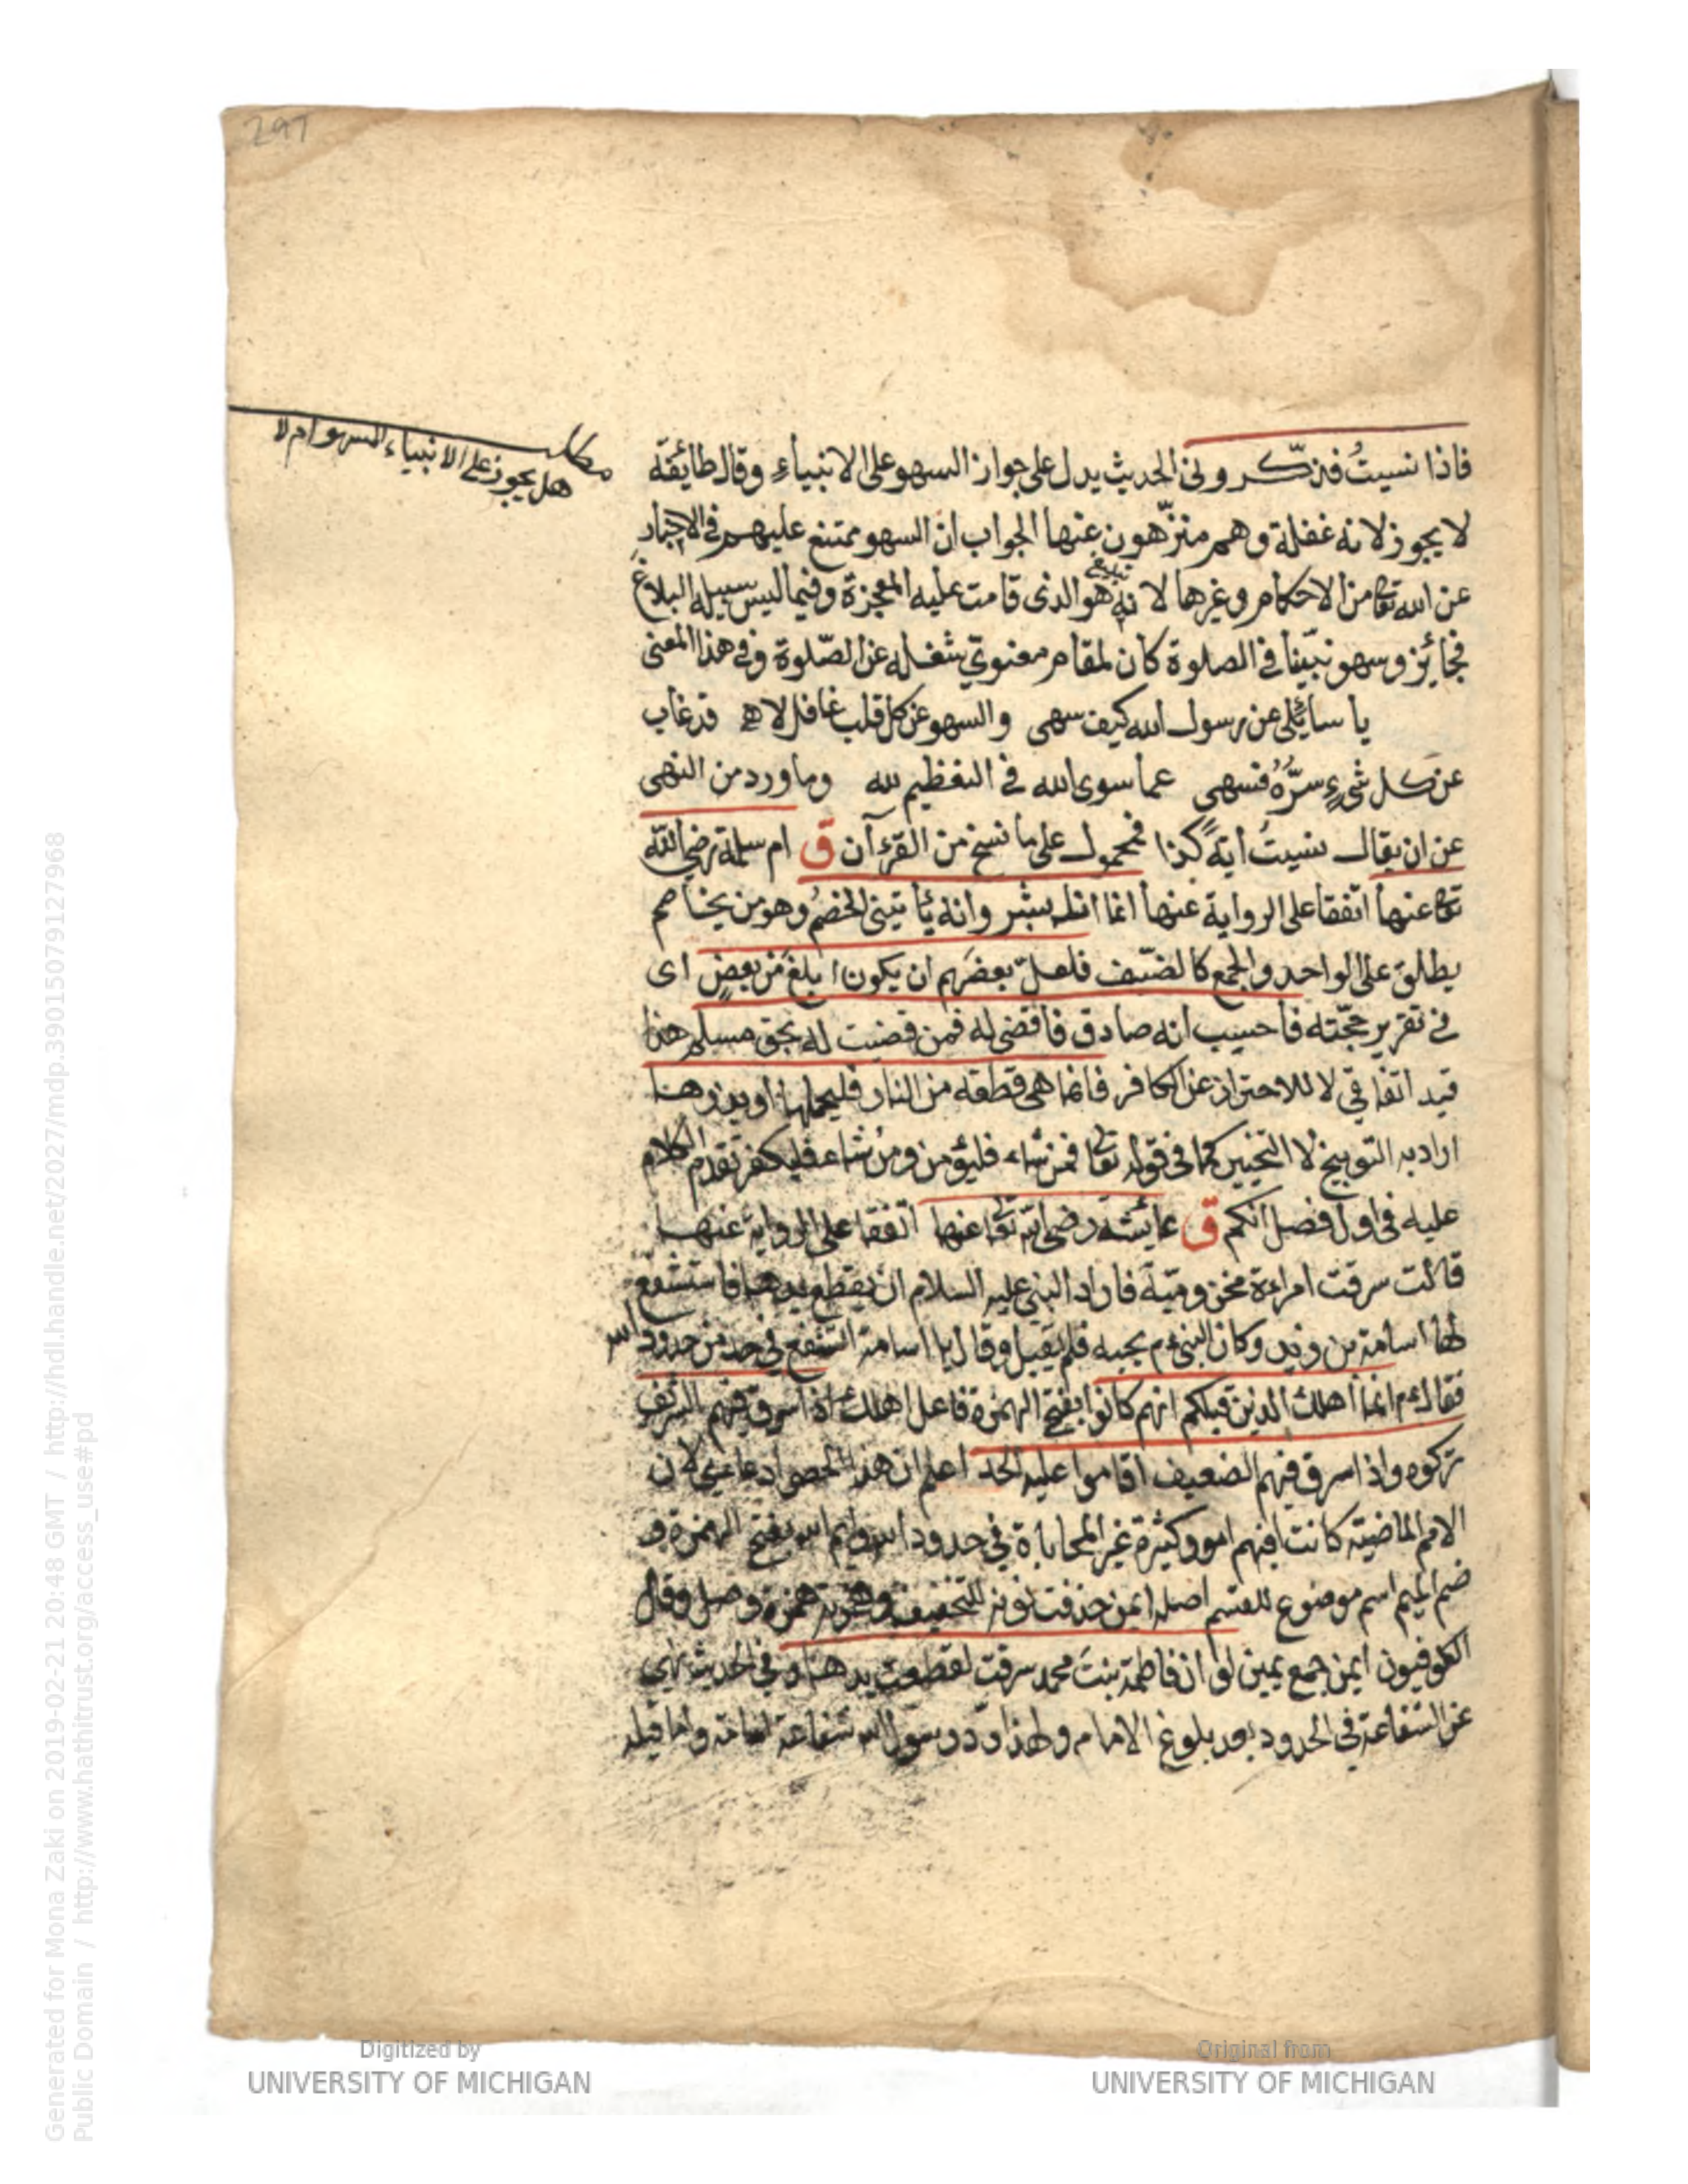 297
مطلب
هل يجوز على الانبياء السهو ام لا
فاذا نسيتُ فذكّر وفي الحديث يدل على جواز السهو على الانبياء وقال طائفة
لا يجوز لانه غفلة وهم منزّهون عنها الجواب ان السهو ممتنع عليهم في الاخبار
عن الله تعا من الاحكام وغيرها لانه هو الذى قامت عليه المعجزة وفيما ليس سبيله البلاغ
فجائز وسهو نبيّنا في الصلوة كان لمقام معنوي شغله عن الصّلوة وفي هذا المعنى
يا سائلى عن رسول الله كيف سهى والسهو عن كل قلب غافل لاه قد غاب
عن كل شيءٍ سرُّهُ فسهى عما سوى الله في التعظيم لله وما ورد من النهى
عن ان يقال نسيتُ أيةً كذا فمحمول على ما نسخ من القرءآن ق ام سلمة رضي الله
تعا عنها اتفقا على الرواية عنها انما انا بشر وانه يأتيني الخصمُ وهو من يخاصم
يطلق على الواحد والجمع كالضّيف فلعلّ بعضهم ان يكون ابلغ من بعضٍ اى
في تقرير حجّته فاحسب انه صادق فاقضى له فمن قضيت له بحق مسلم هذا
قيد اتفاقي لا للاحتراز عن الكافر فانما هى قطعة من النار فليحملها او يذرها
اراد به التوبيخ لا التخيير كما في قوله تعا فمن شاء فليؤمن ومن شاء فليكفر تقدم الكلام
عليه في اول فصل انكم ق عايشة رضي الله تعا عنها اتفقا على الرواية عنها
قالت سرقت امراءة مخزومية فاراد النبي عليه السلام ان يقطع يدها فاستشفع
لها اسامة بن زيد وكان النبي عم يحبه فلم يقبل وقال يا اسامة اتشفع في حد من حدود الله
فقال عم انما أهلك الذين قبلكم انهم كانوا بفتح الهمزة فاعل اهلك اذا سرق فيهم الشريف
تركوه واذا سرق فيهم الضعيف اقاموا عليه الحد اعلم ان هذا الحصر ادعائي لان
الامم الماضية كانت فيهم امور كثيرة غير المحاباة في حدود الله وايم الله بفتح الهمزة و
ضم الميم اسم موضوع للقسم اصله ايمن حذفت نونه للتخفيف وهمزته همزة وصل وقال
الكوفيون ايمن جمع يمين لو ان فاطمة بنت محمد سرقت لقطعت يدها وفي الحديث نهي
عن الشفاعة في الحدود بعد بلوغ الامام ولهذا ردّ رسول الله شفاعة اسامة واما قبله
Digitized by
UNIVERSITY OF MICHIGAN
Original from
UNIVERSITY OF MICHIGAN
Generated for Mona Zaki on 2019-02-21 20:48 GMT / http://hdl.handle.net/2027/mdp.39015079127968
Public Domain / http://www.hathitrust.org/access_use#pd